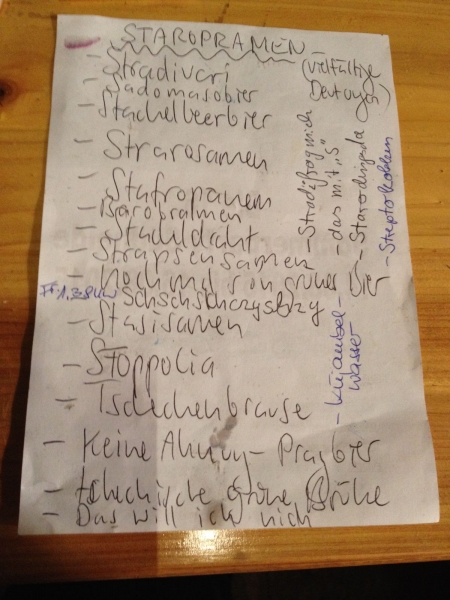 STAROPRAMEN -
(vielfältige
Deutungen)
- Stradivari
- Sadomasobier
- Stachelbeerbier
- Strarosamen
- Stafropanem
- Baropramen
- Stacheldraht
- Strapsensamen
- Nochmal so'n grünes Bier
- Schschschczysbzy
- Stasisamen
- STOppolia
- Tschechenbrause
- Keine Ahnung - Pragbier
- tchechische Grüne Brühe
- Das will ich nich
das mit "S"
- Staropingsda
- Streptokokken
wasser